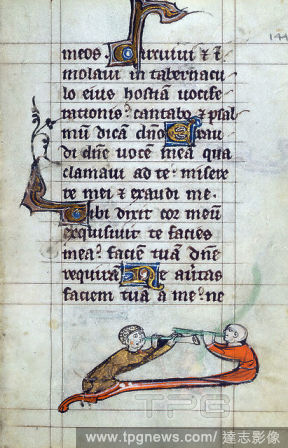 144
meos. Circuiui ⁊ ĩ
molaui in tabernacu
lo eius hostiã uocife
rationis. cantabo ⁊ psal
mũ dicã dño. Exau
di dñe uocẽ meã qua
clamaui ad te. misere
re mei ⁊ exaudi me.
Tibi dixit cor meũ
exquisiuit te facies
mea. faciẽ tuã dñe
requirã. Ne auertas
faciem tuã a me. ne
TPG
www.tpgnews.com / 達志影像